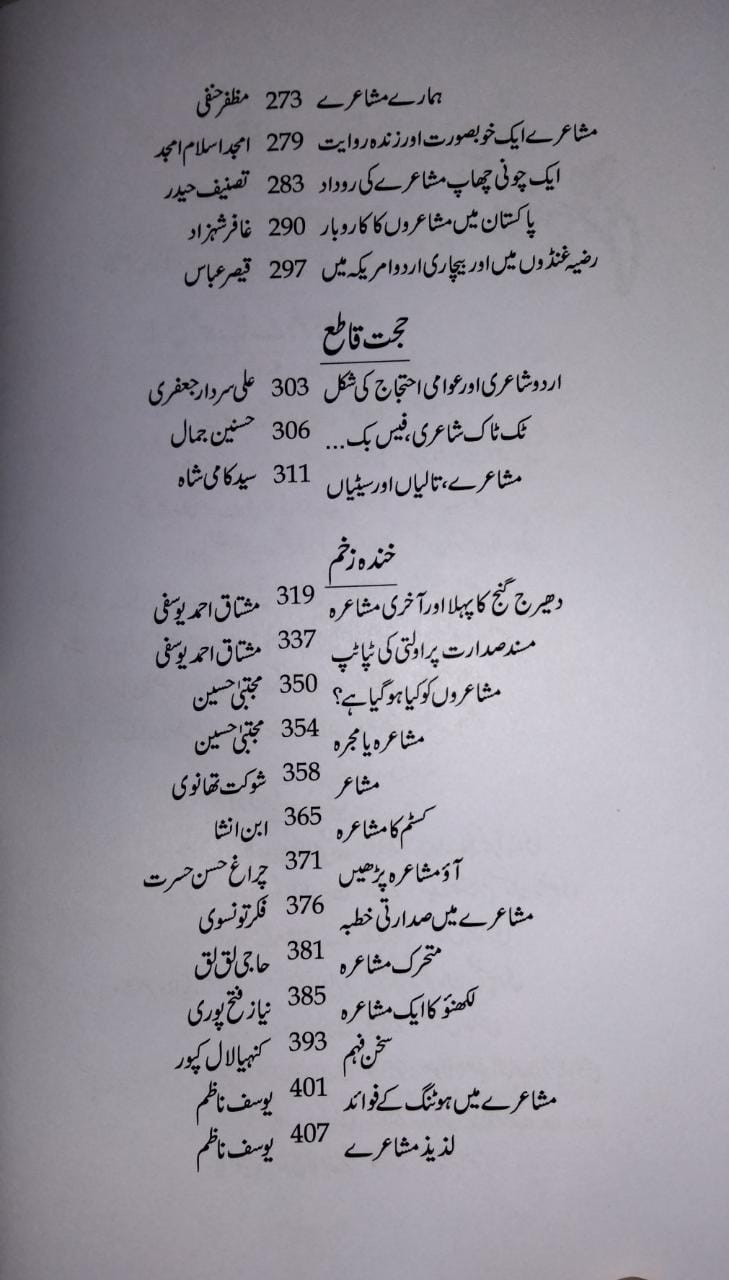 ہمارے مشاعرے 273 مظفر حنفی
مشاعرے ایک خوبصورت اور زندہ روایت 279 امجد اسلام امجد
ایک چونی چھاپ مشاعرے کی روداد 283 تصنیف حیدر
پاکستان میں مشاعروں کا کاروبار 290 غافر شہزاد
رضیہ غنڈوں میں اور بیچاری اردو امریکہ میں 297 قیصر عباس
حجت قاطع
اردو شاعری اور عوامی احتجاج کی شکل 303 علی سردار جعفری
ٹک ٹاک شاعری، فیس بک... 306 حسنین جمال
مشاعرے، تالیاں اور سیٹیاں 311 سید کامی شاہ
خندہ زخم
دھیرج گنج کا پہلا اور آخری مشاعرہ 319 مشتاق احمد یوسفی
مسند صدارت پر اولتی کی ٹپاٹپ 337 مشتاق احمد یوسفی
مشاعروں کو کیا ہو گیا ہے؟ 350 مجتبیٰ حسین
مشاعرہ یا مجرہ 354 مجتبیٰ حسین
مشاعر 358 شوکت تھانوی
کسٹم کا مشاعرہ 365 ابن انشا
آؤ مشاعرہ پڑھیں 371 چراغ حسن حسرت
مشاعرے میں صدارتی خطبہ 376 فکر تونسوی
متحرک مشاعرہ 381 حاجی لق لق
لکھنؤ کا ایک مشاعرہ 385 نیاز فتح پوری
سخن فہم 393 کنہیا لال کپور
مشاعرے میں ہوٹنگ کے فوائد 401 یوسف ناظم
لذیذ مشاعرے 407 یوسف ناظم